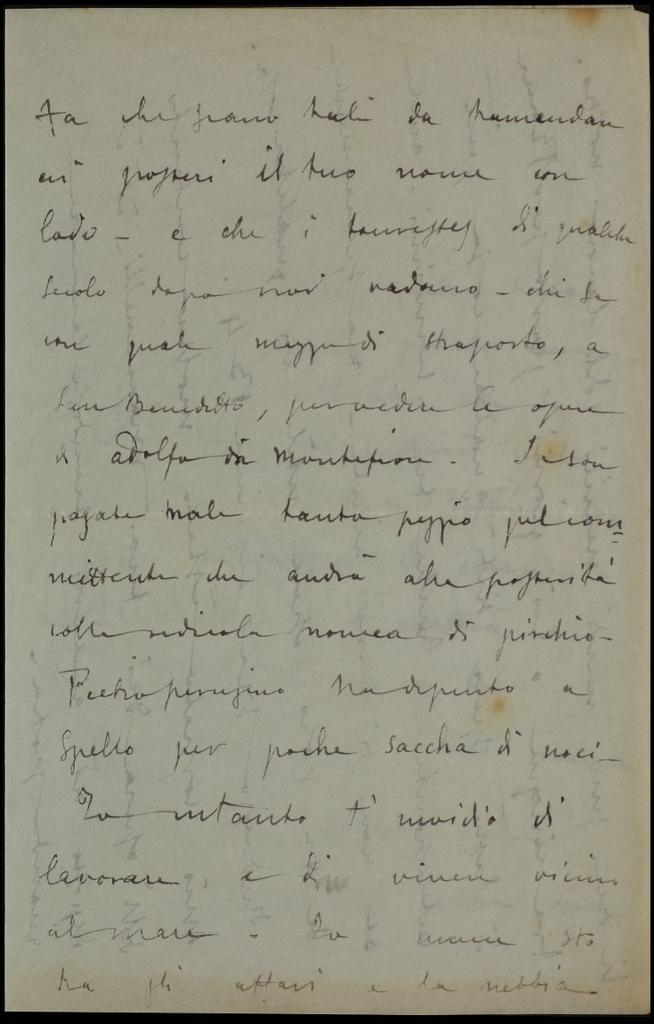 Fa che siano tali da tramandare
ai posteri il tuo nome con
lode - e che i touristes di qualche
secolo dopo noi vadano - chi sa
con quale mezzo di trasporto, a
San Benedetto, per vedere le opere
di Adolfo da Montefiore. Se son
pagate male tanto peggio pel com=
mittente che andrà alla posterità
colla ridicola nomea di pirchio -
Pietro perugino ha dipinto a
Spello per poche saccha di noci -
Io intanto t'invidio di
lavorare, e di vivere vicino
al mare. Io invece sto
tra gli affari e la nebbia